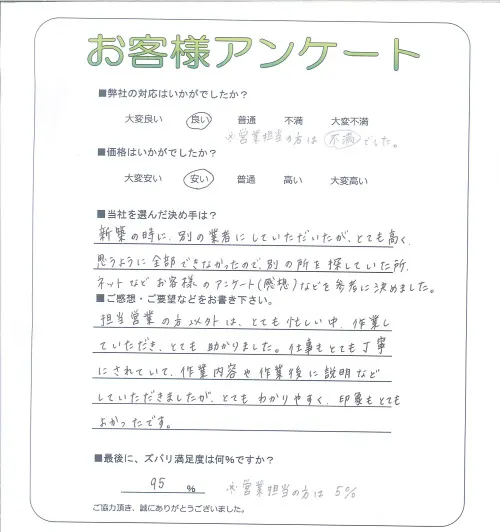 お客様アンケート
■弊社の対応はいかがでしたか？
大変良い 良い 普通 不満 大変不満
※営業担当の方は 不満 でした。
■価格はいかがでしたか？
大変安い 安い 普通 高い 大変高い
■当社を選んだ決め手は？
新築の時に、別の業者にしていただいたが、とても高く、
思うように全部できなかったので、別の所を探していた所、
ネットなどお客様のアンケート(感想)などを参考に決めました。
■ご感想・ご要望などをお書き下さい。
担当営業の方以外は、とても忙しい中、作業し
ていただき、とても助かりました。仕事もとても丁寧
にされていて、作業内容や作業後に説明など
していただきましたが、とてもわかりやすく、印象もとても
よかったです。
■最後に、ズバリ満足度は何%ですか？
95 % ※営業担当の方は 5%
ご協力頂き、誠にありがとうございました。